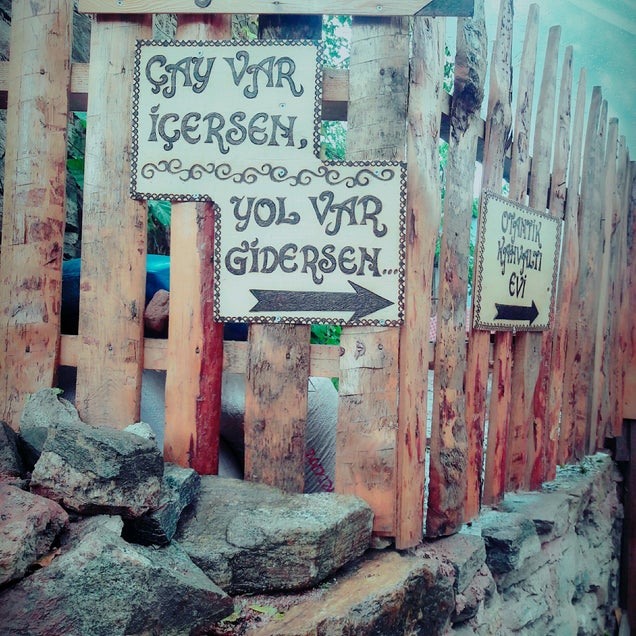 ÇAY VAR
İÇERSEN,
YOL VAR
GİDERSEN...
OTANTİK
KAHVALTI
EVİ